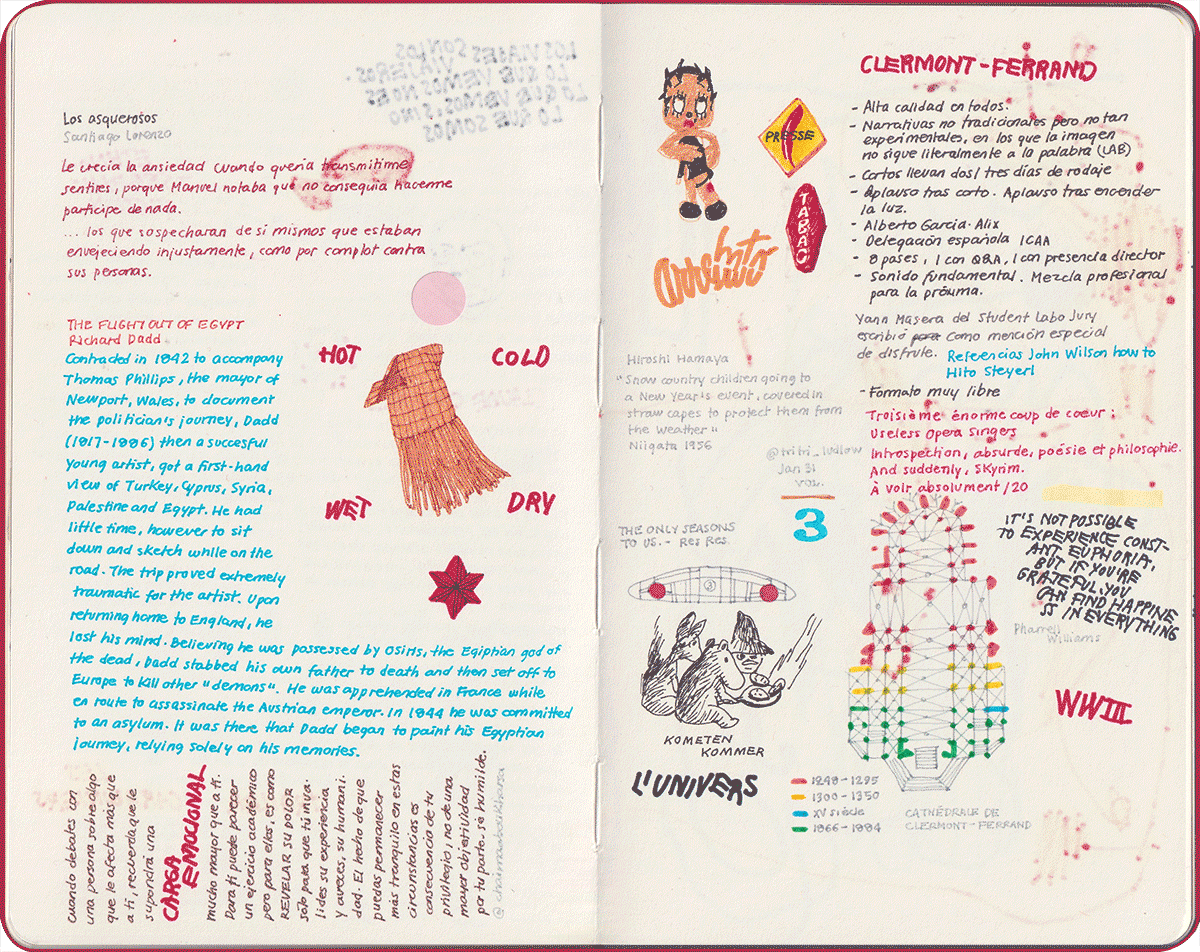 LOS VIAJES SON LOS
VIAJEROS.
LO QUE VEMOS NO ES
LO QUE VEMOS, SINO
LO QUE SOMOS
Los asquerosos
Santiago Lorenzo
Le crecía la ansiedad cuando quería transmitirme
sentires, porque Manuel notaba que no conseguía hacerme
partícipe de nada.
... los que sospecharan de sí mismos que estaban
envejeciendo injustamente, como por complot contra
sus personas.
THE FLIGHT OUT OF EGYPT
Richard Dadd
Contracted in 1842 to accompany
Thomas Phillips, the mayor of
Newport, Wales, to document
the politician's journey, Dadd
(1817-1886) then a succesful
young artist, got a first-hand
view of Turkey, Cyprus, Syria,
Palestine and Egypt. He had
little time, however to sit
down and sketch while on the
road. The trip proved extremely
traumatic for the artist. Upon
returning home to England, he
lost his mind. Believing he was possessed by OSIRIS, the Egiptian god of
the dead, Dadd stabbed his own father to death and then set off to
Europe to kill other "demons". He was apprehended in France while
en route to assassinate the Austrian emperor. In 1844 he was committed
to an asylum. It was there that Dadd began to paint his Egyptian
journey, relying solely on his memories.
HOT
COLD
WET
DRY
cuando debates con
una persona sobre algo
que le afecta más que
a ti, recuerda que le
supondrá una
CARGA
EMOCIONAL
mucho mayor que a ti.
Para ti puede parecer
un ejercicio académico
pero para ellas, es como
REVELAR SU DOLOR
sólo para que tú inva-
lides su experiencia
y a veces, su humani-
dad. El hecho de que
puedas permanecer
más tranquilo en estas
circunstancias es
consecuencia de tu
privilegio, no de una
mayor objetividad
por tu parte. sé humilde.
@chaimaaboukharsa
PRESSE
TABAC
arrebato
Hiroshi Hamaya
"Snow country children going to
a New Year's event, covered in
straw capes to protect them from
the weather"
Niigata 1956
@tritri_ludlow
Jan 31
vol.
3
THE ONLY SEASONS
TO US. - Res Res.
3
KOMETEN
KOMMER
L'UNIVERS
CLERMONT-FERRAND
- Alta calidad en todos.
- Narrativas no tradicionales pero no tan
experimentales, en los que la imagen
no sigue literalmente a la palabra (LAB)
- Cortos llevan dos/ tres días de rodaje
- Aplauso tras corto. Aplauso tras encender
la luz.
- Alberto García-Alix
- Delegación española ICAA
- 8 pases, 1 con Q&A, 1 con presencia director
- Sonido fundamental. Mezcla profesional
para la próxima.
Yann Masera del Student Labo Jury
escribió para como mención especial
de disfrute. Refeencias John Wilson how to
Hito Steyerl
- Formato muy libre
Troisième énorme coup de coeur :
Useless Opera Singers
Introspection, absurde, poésie et philosophie.
And suddenly, Skyrim.
À voir absolument /20
IT'S NOT POSSIBLE
TO EXPERIENCE CONST-
ANT EUPHORIA,
BUT IF YOU'RE
GRATEFUL, YOU
CAN FIND HAPPINE
SS IN EVERYTHING
Pharrell
Williams
WWIII
1248-1295
1300-1350
XV siècle
1866-1884
CATHÉDRALE DE
CLERMONT-FERRAND